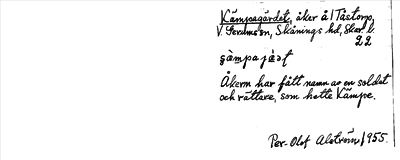 Kämpagärdet, åker å/Tåstorp,
V. Gerumsn, Skånings hd, Skar. l.
22
Åkern har fått namn av en soldat
och rättare, som hette Kämpe.
Per-Olof Alström 1955.